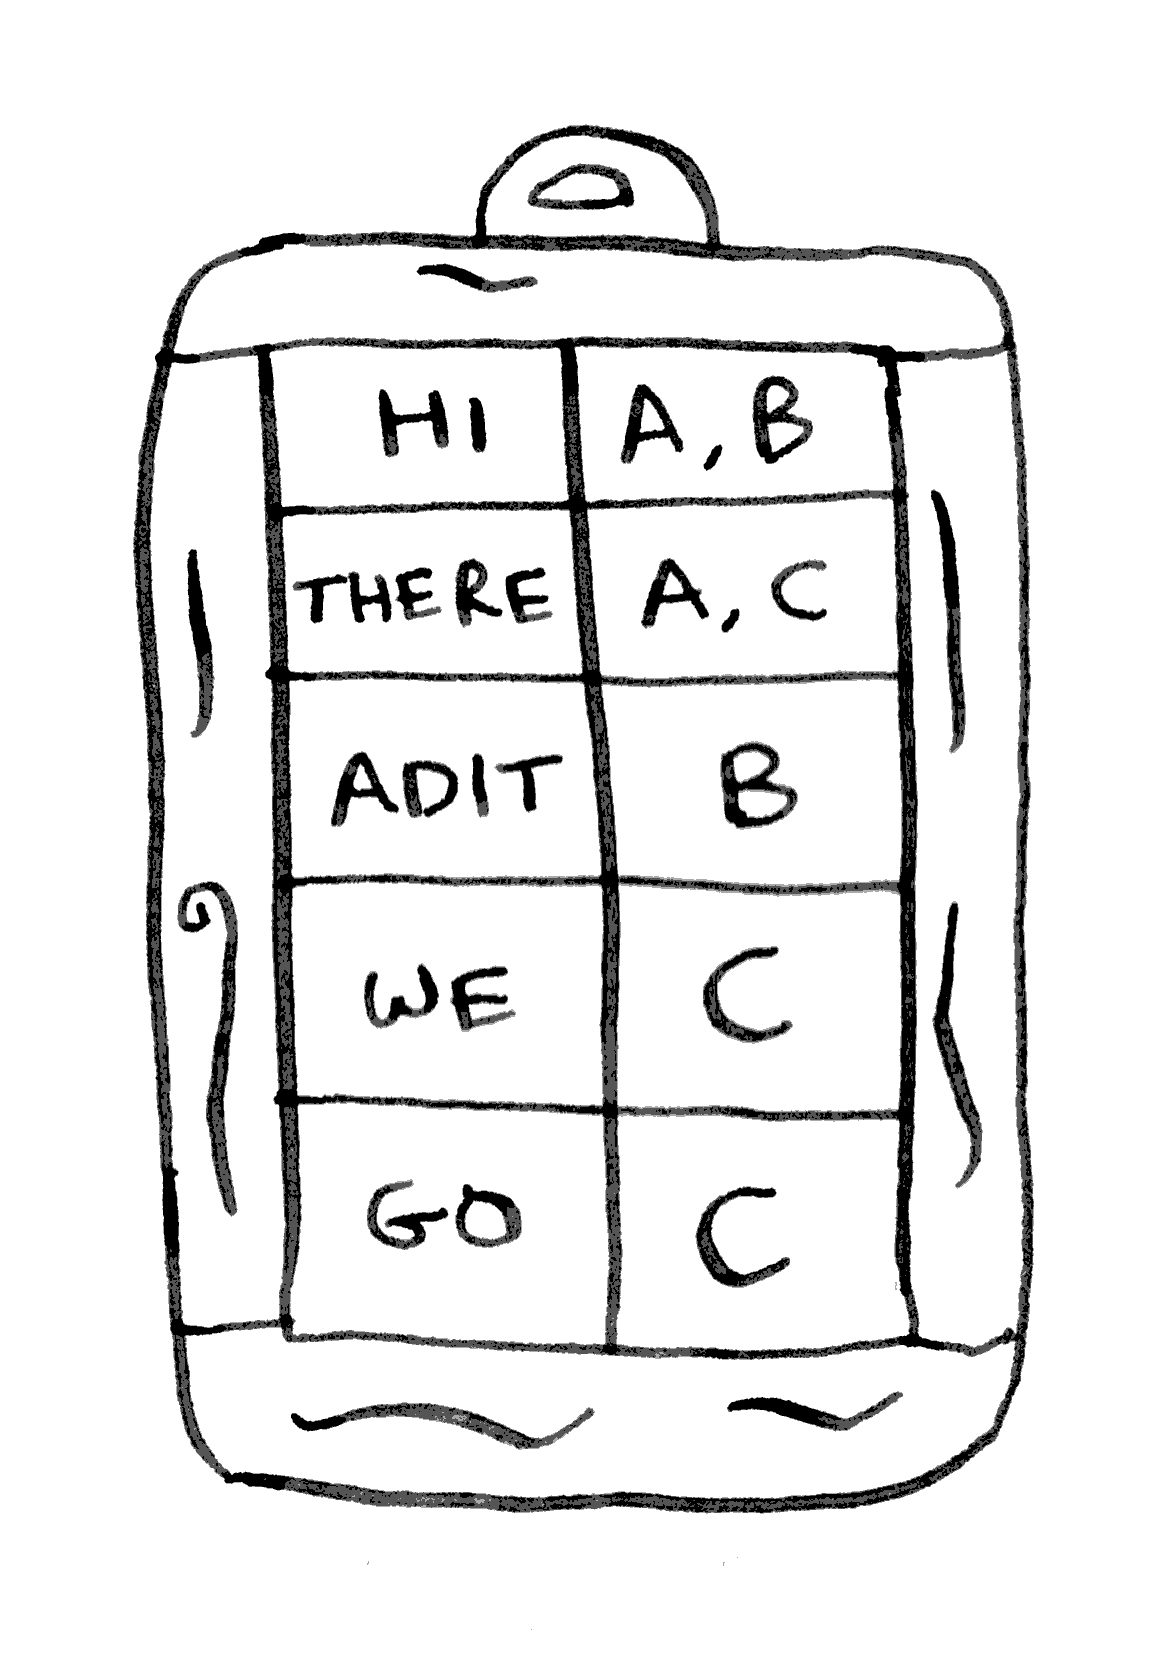 HI A, B
THERE A, C
ADIT B
WE C
GO C